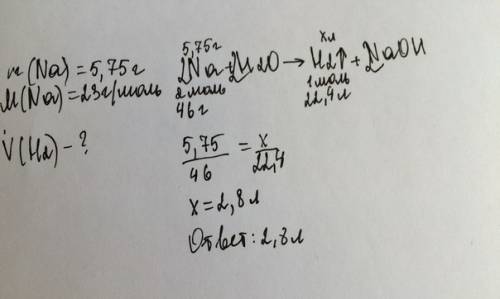 m(Na)=5,75г
M(Na)=23г/моль
V(H2)-?
5,75г хл
2Na+2H2O→H2↑+2NaOH
2моль 1моль
46г 22,4л
5,75/46 = х/22,4
х=2,8л
Ответ: 2,8л